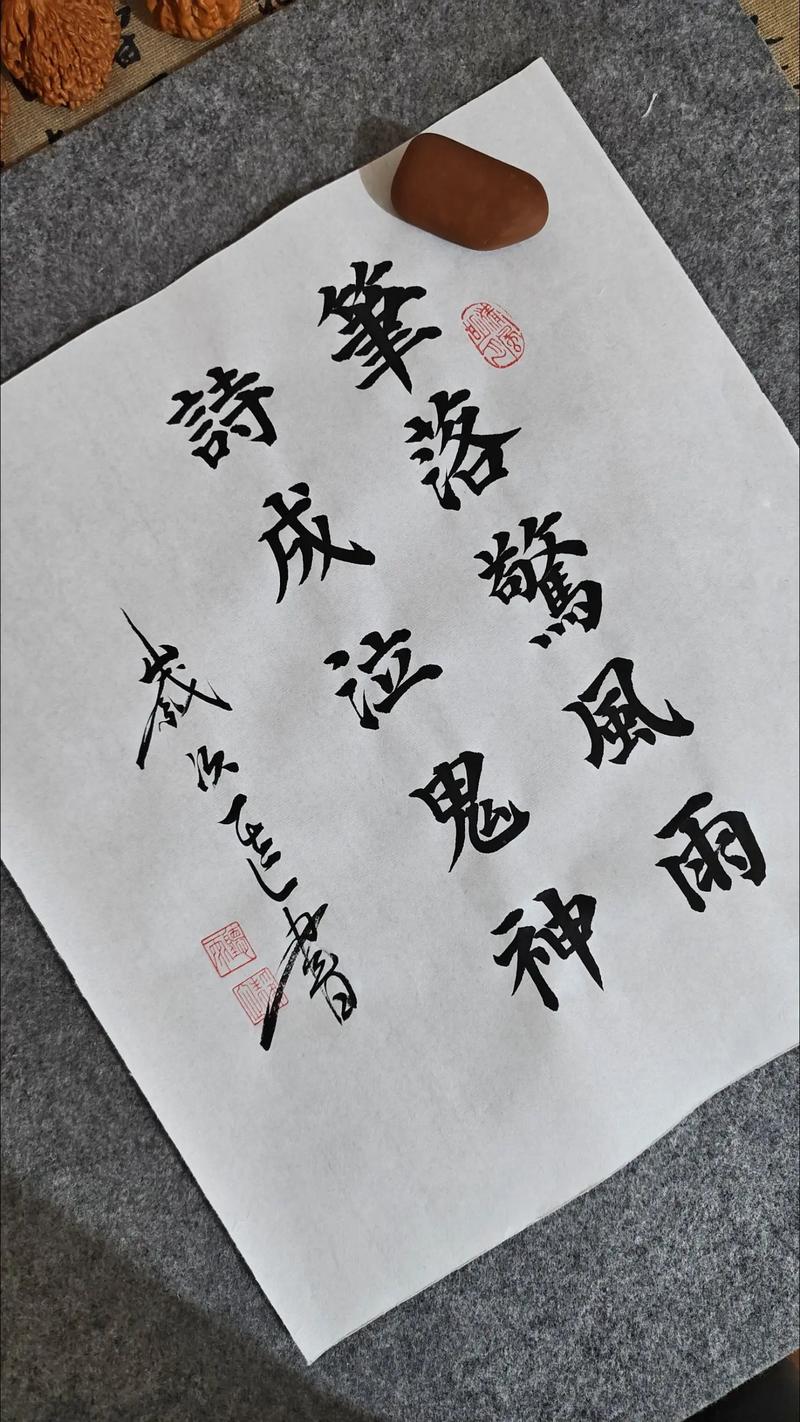 筆落驚風雨
詩成泣鬼神
歲次書